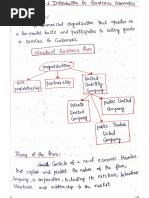 -1 Introduction to Business Economics
a commercial organization that operates on
a for-profit basis and participates in selling goods
& services to customers.
Standard Business Firm
Organization
Sole
Proprietorship
Partnership
Limited
Liability
Company
Private Limited
Company
Public Limited
Company
Public Traded
Limited
Company
Theory of the firm:
Consists of a novel economic theories
that explain and predict the nature of the firm,
company, or corporation, including its existence, behaviour
structure and relationship to the market